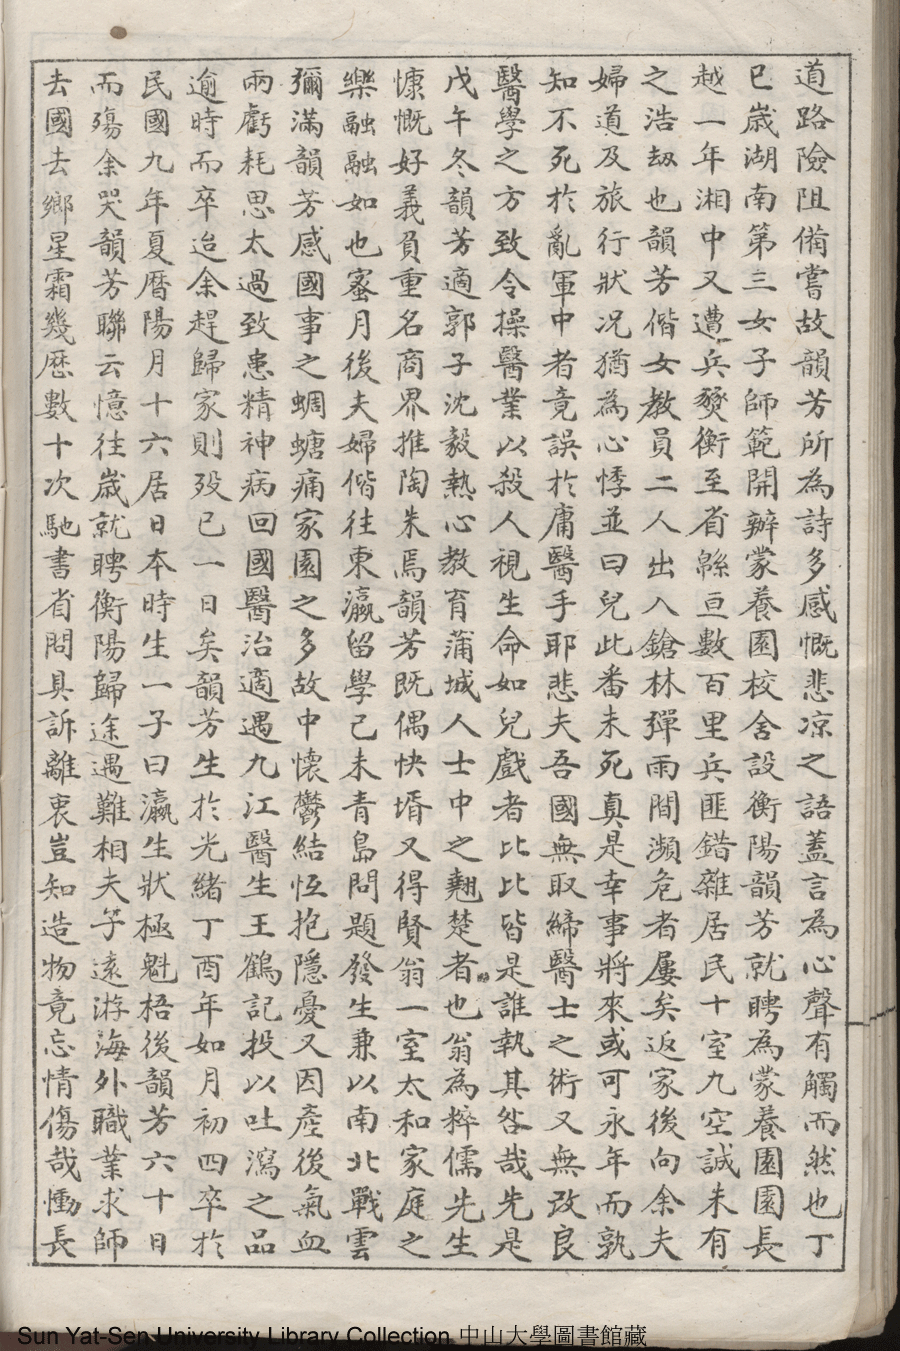 道路險阻備嘗故韻芳所為詩多感慨悲凉之語蓋言為心聲有觸而然也丁
巳歲湖南第三女子師範開辦蒙養園校舍設衡陽韻芳就聘為蒙養園園長
越一年湘中又遭兵燹衡至省緜亘數百里兵匪錯雜居民十室九空誠未有
之浩劫也韻芳偕女教員二人出入鎗林彈雨間瀕危者屢矣返家後向余夫
婦道及旅行狀况猶為心悸並曰兒此番未死真是幸事將來或可永年而孰
知不死於亂軍中者竟誤於庸醫手耶悲夫吾國無取締醫士之術又無改良
醫學之方致令操醫業以殺人視生命如兒戲者比比皆是誰執其咎哉先是
戊午冬韻芳適郭子沈毅熱心教育蒲城人士中之翹楚者也翁為粹儒先生
慷慨好義負重名商界推陶朱焉韻芳既偶快壻又得賢翁一室太和家庭之
樂融融如也蜜月後夫婦偕往東瀛留學己未青島問題發生兼以南北戰雲
彌滿韻芳感國事之蜩螗痛家園之多故中懷鬱結恆抱隱憂又因產後氣血
兩虧耗思太過致患精神病回國醫治適遇九江醫生王鶴記投以吐瀉之品
逾時而卒迨余趕歸家則殁已一日矣韻芳生於光緒丁酉年如月初四卒於
民國九年夏曆陽月十六居日本時生一子曰瀛生狀極魁梧後韻芳六十日
而殤余哭韻芳聯云憶往歲就聘衡陽歸途遇難相夫子遠游海外職業求師
去國去鄉星霜幾歷數十次馳書省問具訴離衷豈知造物竟忘情傷哉慟長
Sun Yat-Sen University Library Collection 中山大學圖書館藏